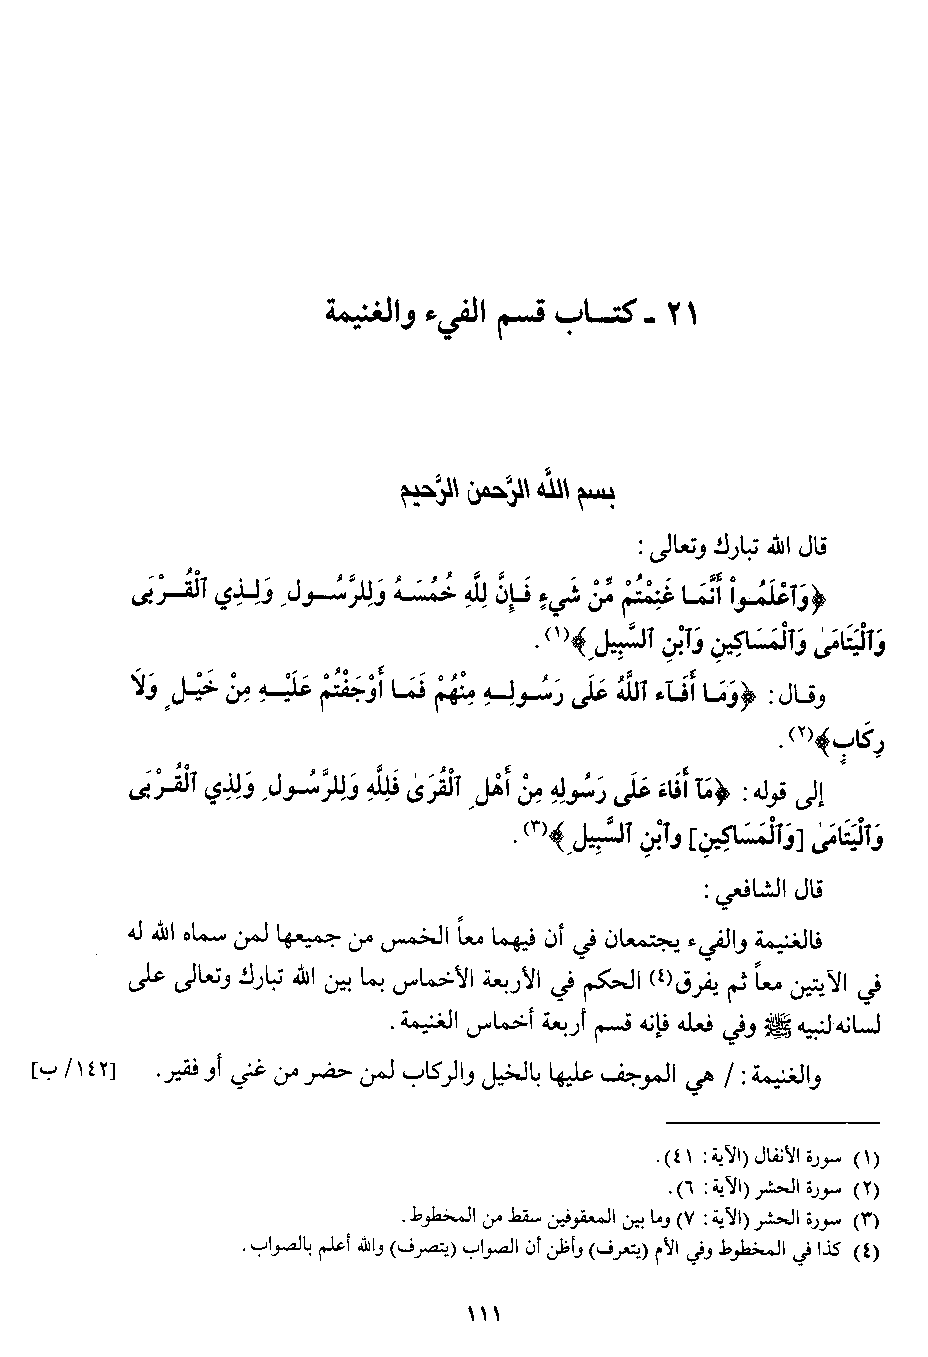 ٢١ ـ كتـــاب قسم الفيء والغنيمة
بسم الله الرَّحمن الرَّحيم
قال الله تبارك وتعالى :
﴿وَٱعْلَمُـواْ أَنَّمَـا غَنِمْتُمْ مِّنْ شَيءٍ فَـإِنَّ لِلَّهِ خُمُسَـهُ وَلِلرَّسُـولِ وَلِـذِي ٱلْقُـرْبَى
وَٱلْيَتَامَىٰ وَٱلْمَسَاكِينِ وَٱبْنِ ٱلسَّبِيلِ﴾(١).
وقـال : ﴿وَمَـا أَفَـآء ٱللَّهُ عَلَى رَسُولِـهِ مِنْهُمْ فَمَـا أَوْجَفْتُمْ عَلَيْـهِ مِنْ خَيْـلٍ وَلَا
رِكَابٍ﴾(٢).
إلى قوله : ﴿مَآ أَفَاءَ عَلَى رَسُولِهِ مِنْ أَهْلِ ٱلْقُرَىٰ فَلِلَّهِ وَلِلرَّسُولِ وَلِذِي ٱلْقُرْبَى
وَٱلْيَتَامَىٰ [وَٱلْمَسَاكِينِ] وٱبْنِ ٱلسَّبِيلِ﴾(٣).
قال الشافعي :
فالغنيمة والفيء يجتمعان في أن فيهما معاً الخمس من جميعها لمن سماه الله له
في الآيتين معاً ثم يفرق(٤) الحكم في الأربعة الأخماس بما بين الله تبارك وتعالى على
لسانه لنبيه ﷺ وفي فعله فإنه قسم أربعة أخماس الغنيمة .
والغنيمة : / هي الموجف عليها بالخيل والركاب لمن حضر من غني أو فقير . [١٤٢/ ب]
(١) سورة الأنفال (الآية : ٤١).
(٢) سورة الحشر (الآية : ٦).
(٣) سورة الحشر (الآية : ٧) وما بين المعقوفين سقط من المخطوط.
(٤) كذا في المخطوط وفي الأم (يتعرف) وأظن أن الصواب (يتصرف) والله أعلم بالصواب.
١١١